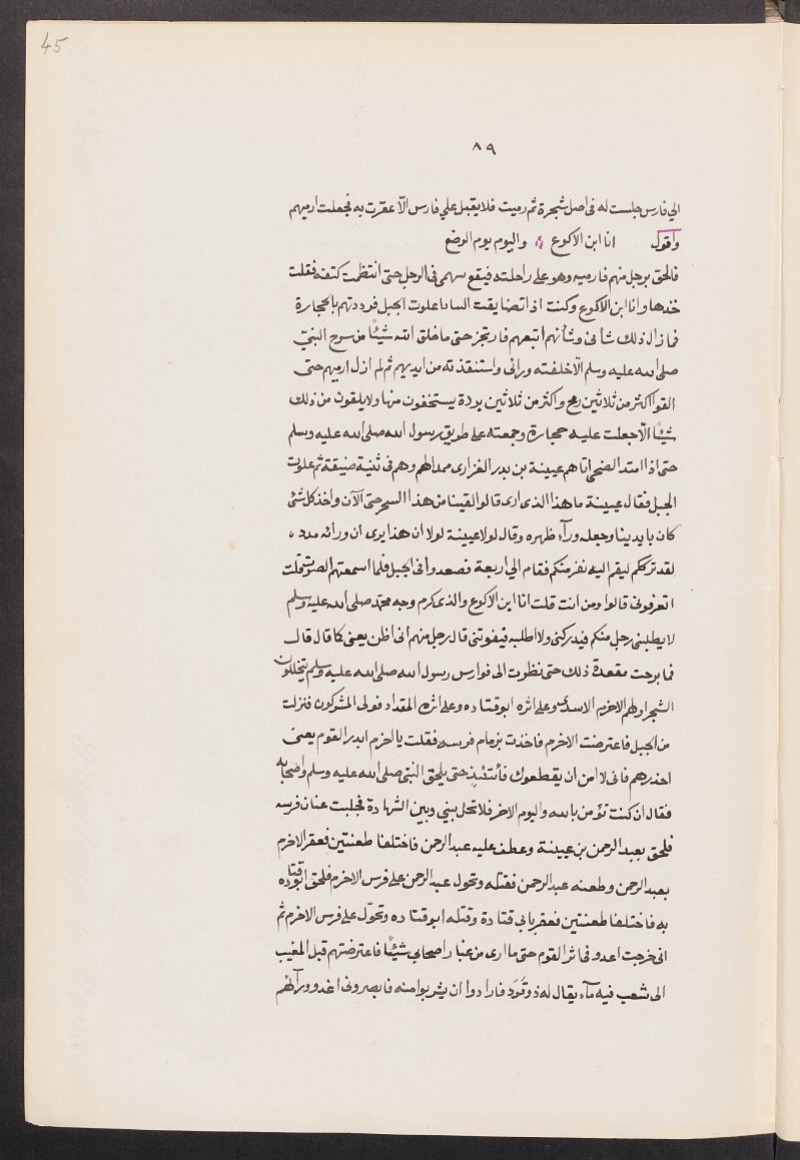 45
٨٩
الي فارس جلست له فى اصل شجرة ثم رميت فلا يقبل علي فارس الّا عقرت به فجعلت ارميهم
واقول انا ابن الاكوع واليوم يوم الرضع
فالحق برجل منهم فارميه وهو على راحلته فيقع سهمى فى الرحل حتى انتظمت كتفه فقلت
خذها وانا ابن الاكوع وكنت اذا تضايقت الساىا علوت الجبل فرددتهم بالحجارة
فما زال ذلك شأنى وشأنهم اتبعهم فارتجز حتى ما خلق الله شيئًا من سرح النبيّ
صلى الله عليه وسلم الّا خلفته ورائى واستنقذته من ايديهم ثم لم ازل ارميهم حتى
القوا اكثر من ثلاثين رمح واكثر من ثلاثين بردة يستخفون منها ولا يلقون من ذلك
شيئًا الّا جعلت عليه حجارة وجمعته على طويق رسول الله صلى الله عليه وسلم
حتى اذا امتد الضحى اتاهم عيينة بن بدر الفزارى ممدا لهم وهم فى ثنية ضيقة ثم علوت
الجبل فقال عيينة ما هذا الذى ارى قالوا لقينا من هذا السحر حتى الآن واخذ كل شئ
كان بايدينا وجعله ورآء ظهره وقال لولا عيينة لولا ان هذا يرى ان ورائه مدد ،
لقد ترككم ليقم اليه نفر منكم فقام الي اربعة فصعدوا فى الجبل فلما اسمعتهم الصوت قلت
اتعرفونى قالوا ومن انت قلت انا ابن الاكوع والذى كرم وجه محمّد صلى الله عليه وسلم
لا يطلبنى رجل منكم فيدركنى ولا اطلبه فيفوتنى قال رجل منهم انى اظن يعنى كما قال قال
فما برحت مقعدة ذلك حتى نظرت الى فوارس رسول الله صلى الله عليه وسلم يتخللون
الشجر اولهم الاخرم الاسدى وعلى اثره ابو قتاده وعلى اثره المقداد فولى المشركون فنزلت
من الجبل فاعترضت الاخرم فاخذت بزمام فرسه فقلت يا اخرم ايدر القوم يعنى
احذرهم فانى لا امن ان يقطعوك فأتئذ حتى يلحق النبى صلى الله عليه وسلم واصحابه
فقال ان كنت تؤمن بالله واليوم الاخر فلا تحل بينى وبين الشهادة فجلبت عنان فرسه
فلحق بعبد الرحمن بن عيينة وعطف عليه عبد الرحمن فاختلفا طعنتين فعقر الاخرم
بعبد الرحمن وطعنه عبد الرحمن فقتله وتحول عبد الرحمن على فرس الاخرم فلحق ابو قتاده
به فاختلفا طعنتين فعقر بابي قتادة وقتله ابو قتاده وتحوّل على فرس الاخرم ثم
انى خرجت اعدو فى اثر القوم حتى ما ارى من غبار اصحابي شيئًا فاعترضتهم قبل المغيب
الى شعب فيه مآء يقال له ذو قَرَد فارادوا ان يشربوا منه فابصرونى اغدو ورآئهم